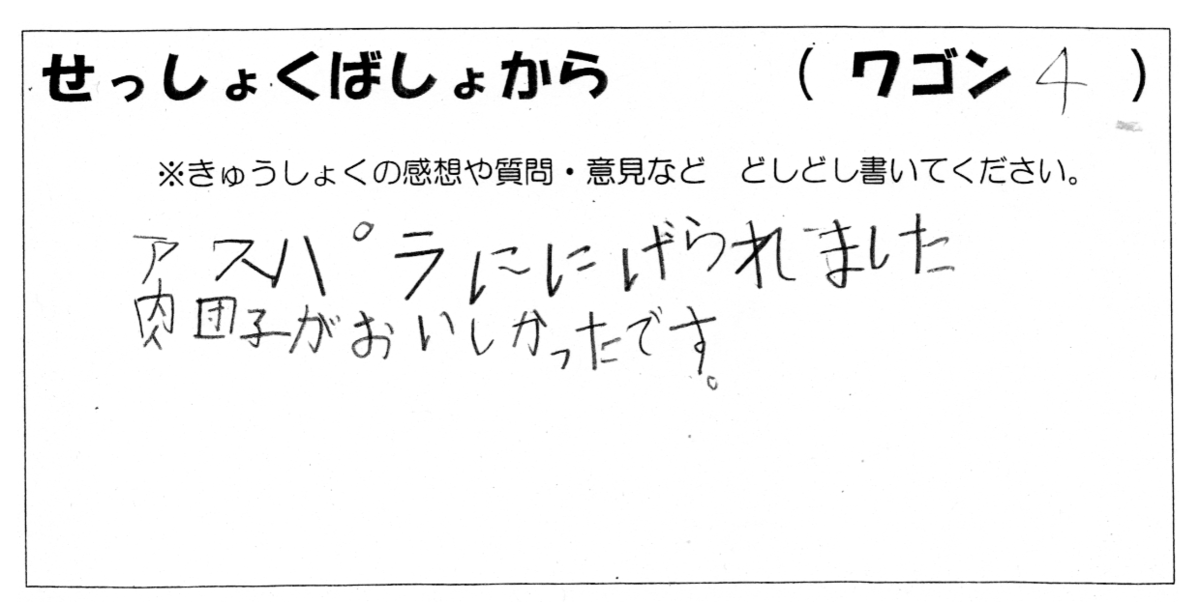 せっしょくばしょから （ ワゴン 4 ）
※きゅうしょくの感想や質問・意見など どしどし書いてください。
アスパラににげられました
肉団子がおいしかったです。